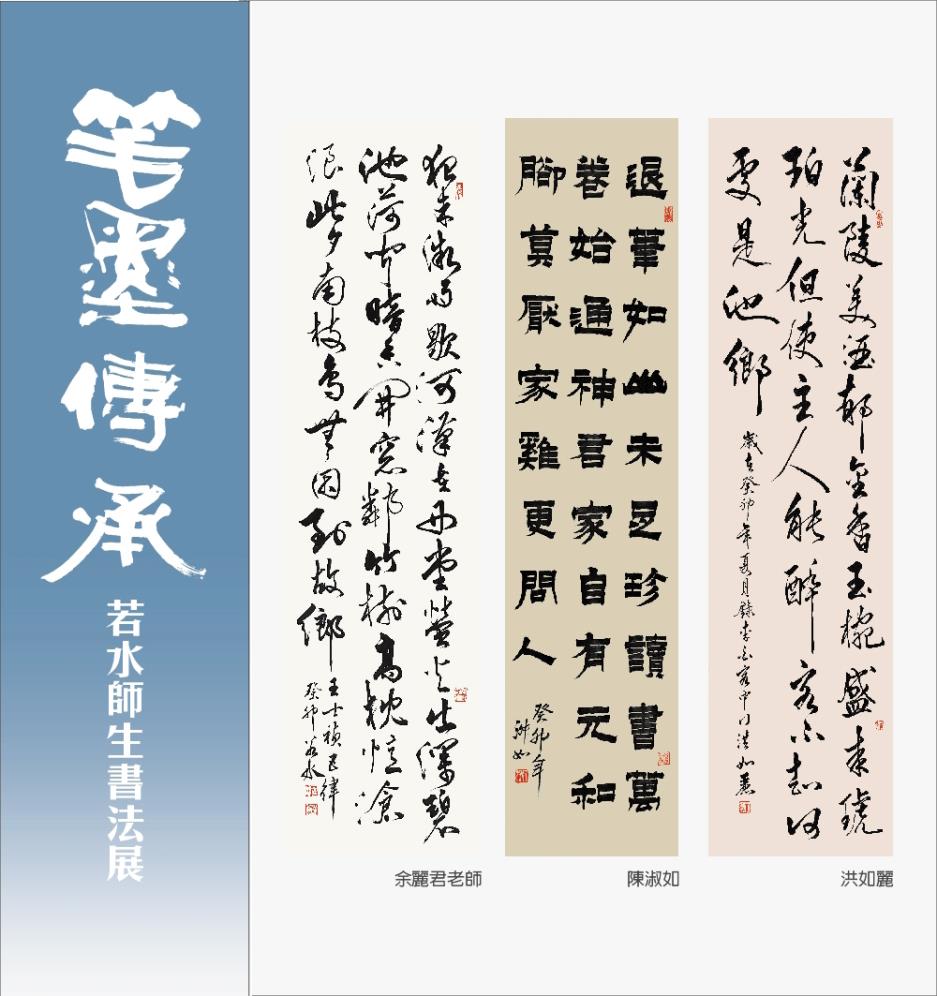 笔墨傳承
若水師生書法展
夜來微雨歇河漢在西堂螢火出深碧
池荷聞暗香開窗鄰竹樹高枕憶滄
浪此夕南枝鳥無因到故鄉
王士禎五律
癸卯若水
余麗君老師
退筆如山未足珍讀書萬
卷始通神君家自有元和
腳莫厭家雞更問人
癸卯年
淑如
陳淑如
蘭陵美酒郁金香玉椀盛來琥
珀光但使主人能醉客不知何
處是他鄉
歲在癸卯年夏月錄李白客中行洪如麗
洪如麗